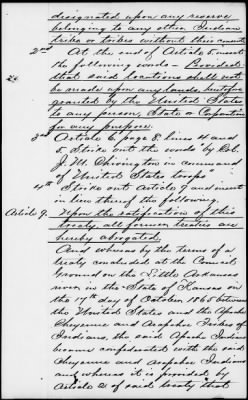 designated upon any reserve
belonging to any other Indian
tribe or tribes without their consent
2nd At the end of Article 2 insert
2e the following words - Provided
that said locations shall not
be made upon any lands heretofore
granted by the United States
to any person, State or Corporation
for any purpose.
3d Article 6, page 8, lines 4 and
5 Strike out the words by Col.
J. M. Chivington in command
of United States troops"
4th Strike out Article 9 and insert
in lieu thereof the following.
Article 9. Upon the ratification of this
treaty, all former treaties are
hereby abrogated
And whereas by the terms of a
treaty concluded at the Council
Ground on the Little Arkansas
river in the State of Kansas on
the 17th day of October 1865 between
the United States and the Apache
Cheyenne and Arapahoe Tribes of
Indians, the said Apache Indians
became confederated with the said
Cheyenne and Arapahoe Indians
and whereas it is provided by
Article 2 of said treaty that